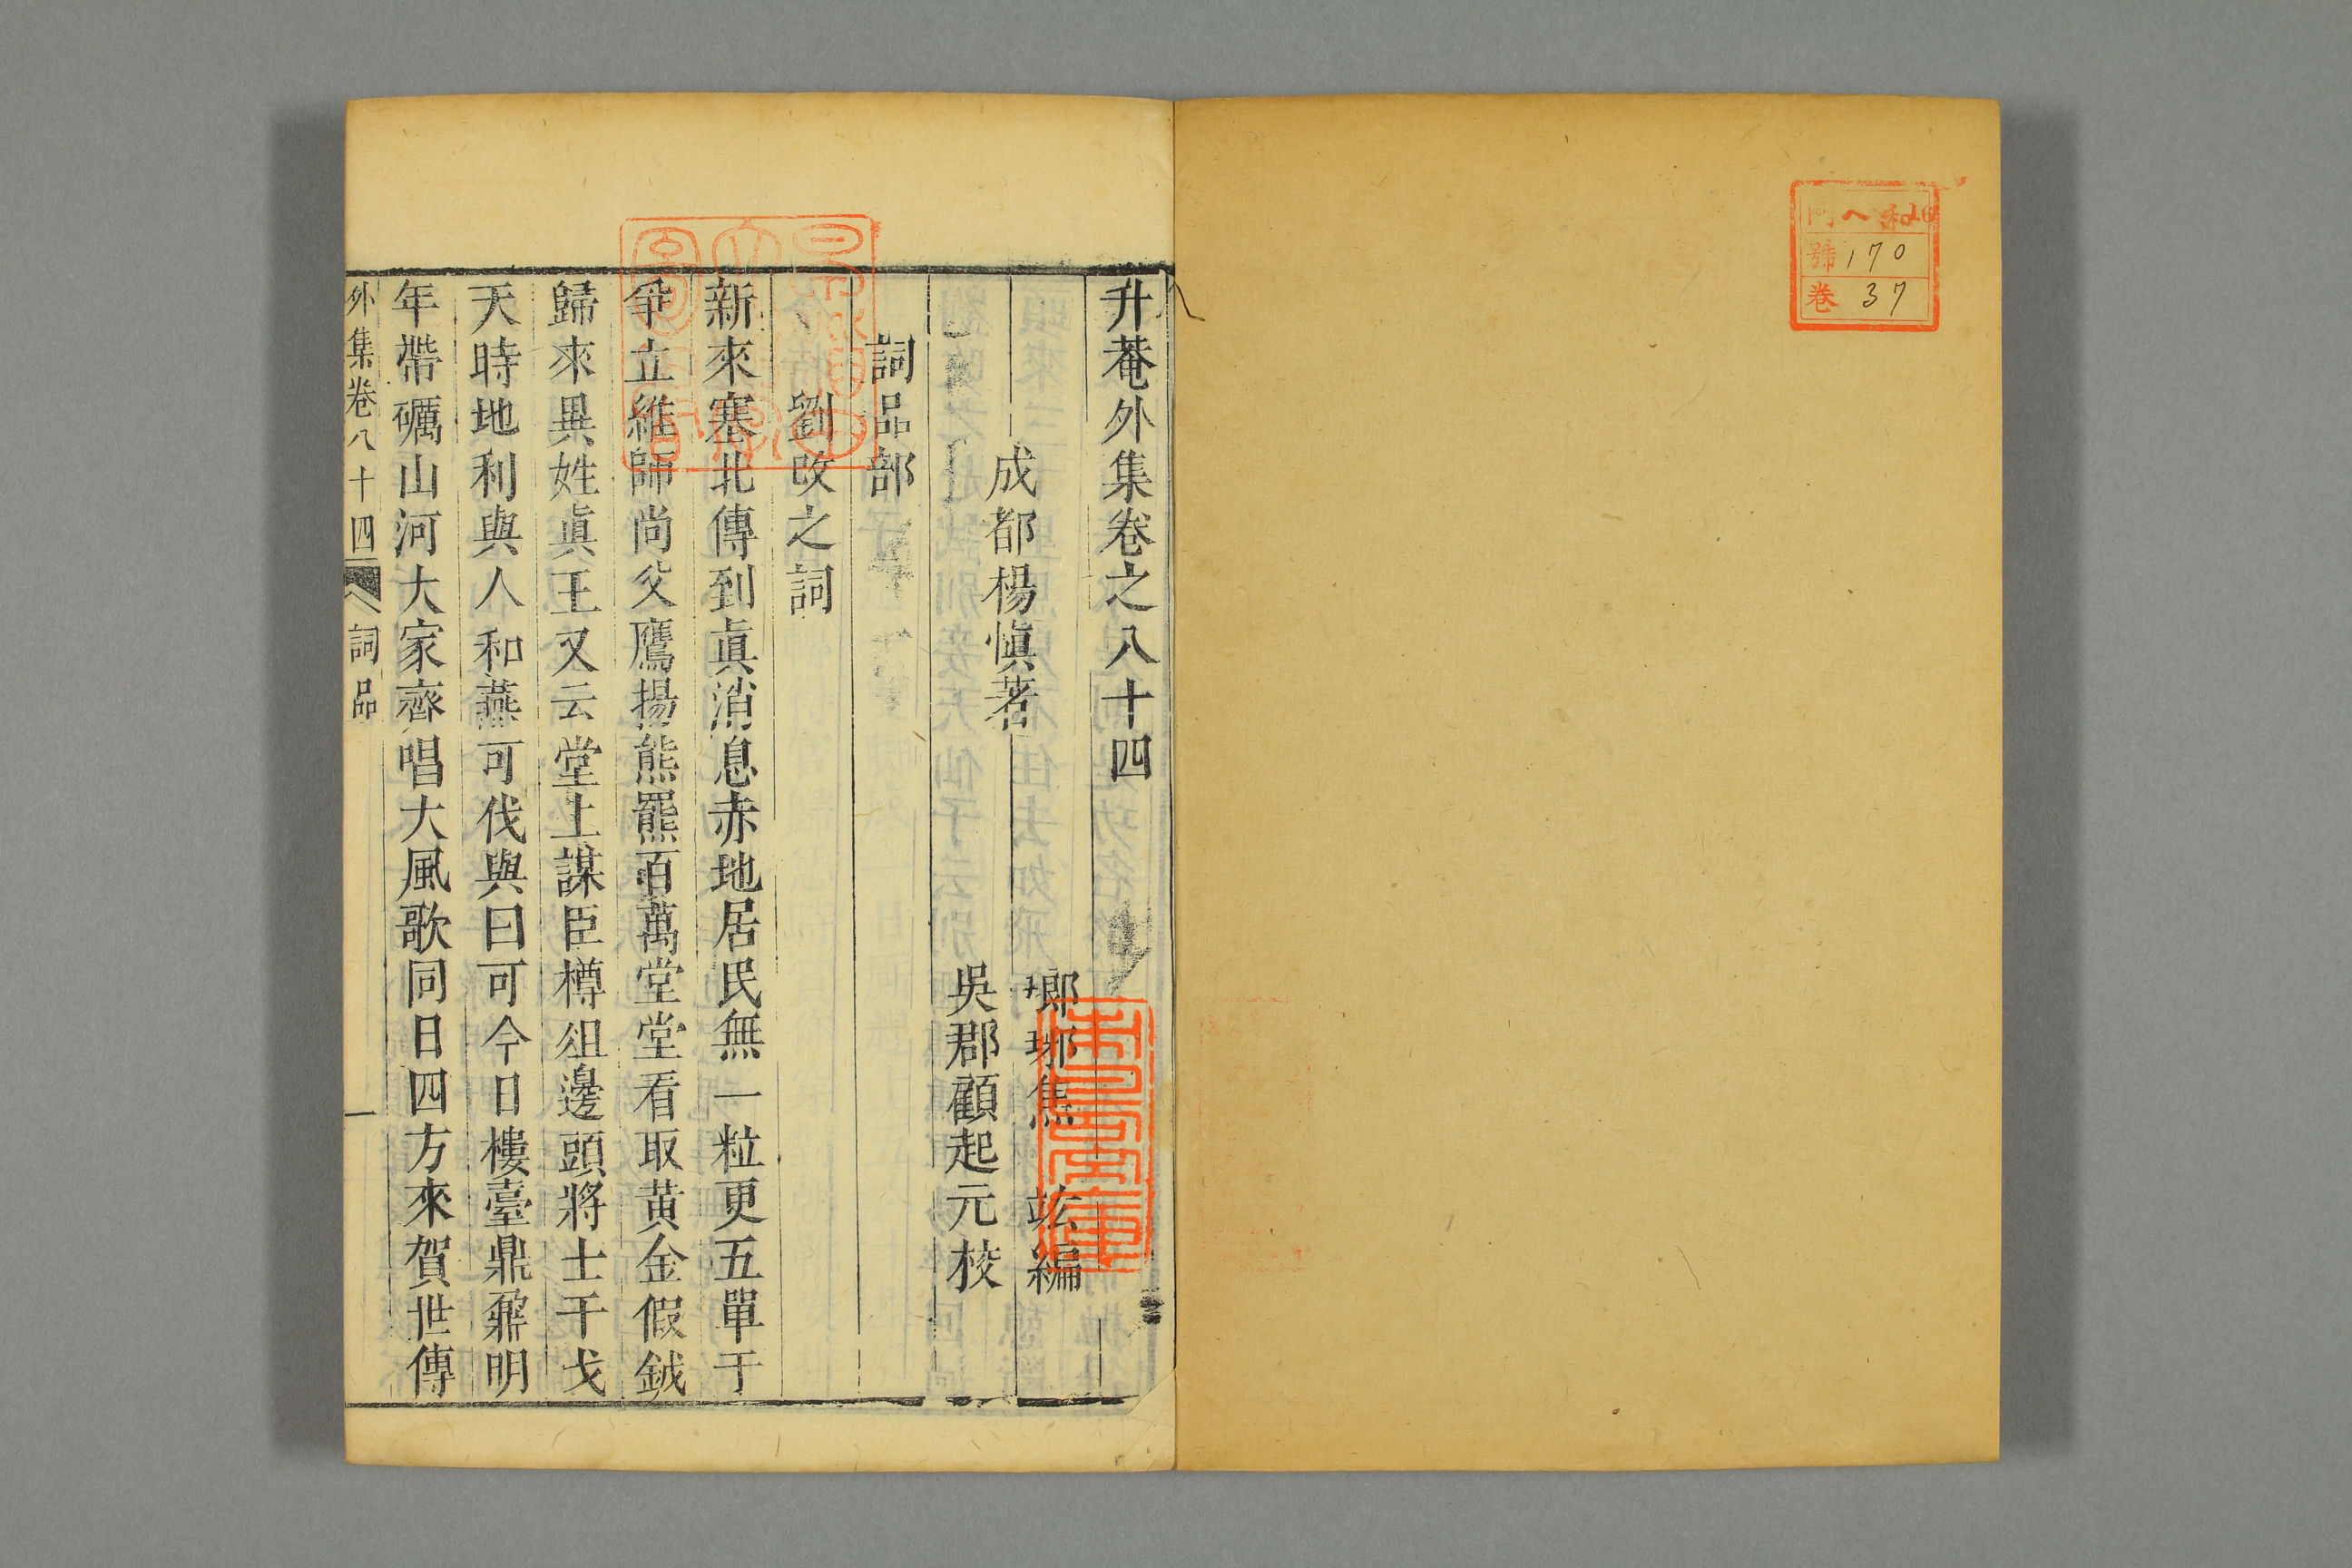 門 ヘ 和16
號 170
卷 37
升菴外集卷之八十四
成都楊愼著
瑯琊焦 竑編
吳郡顧起元校
詞品部
劉改之詞
新來塞北傳到眞消息赤地居民無一粒更五單于
爭立維師尚父鷹揚熊羆百萬堂堂看取黃金假鉞
歸來異姓眞王又云堂上謀臣樽俎邊頭將士干戈
天時地利與人和燕可伐與曰可今日樓臺鼎鼐明
年帶礪山河大家齊唱大風歌同日四方來賀世傳
外集卷八十四 詞品 一